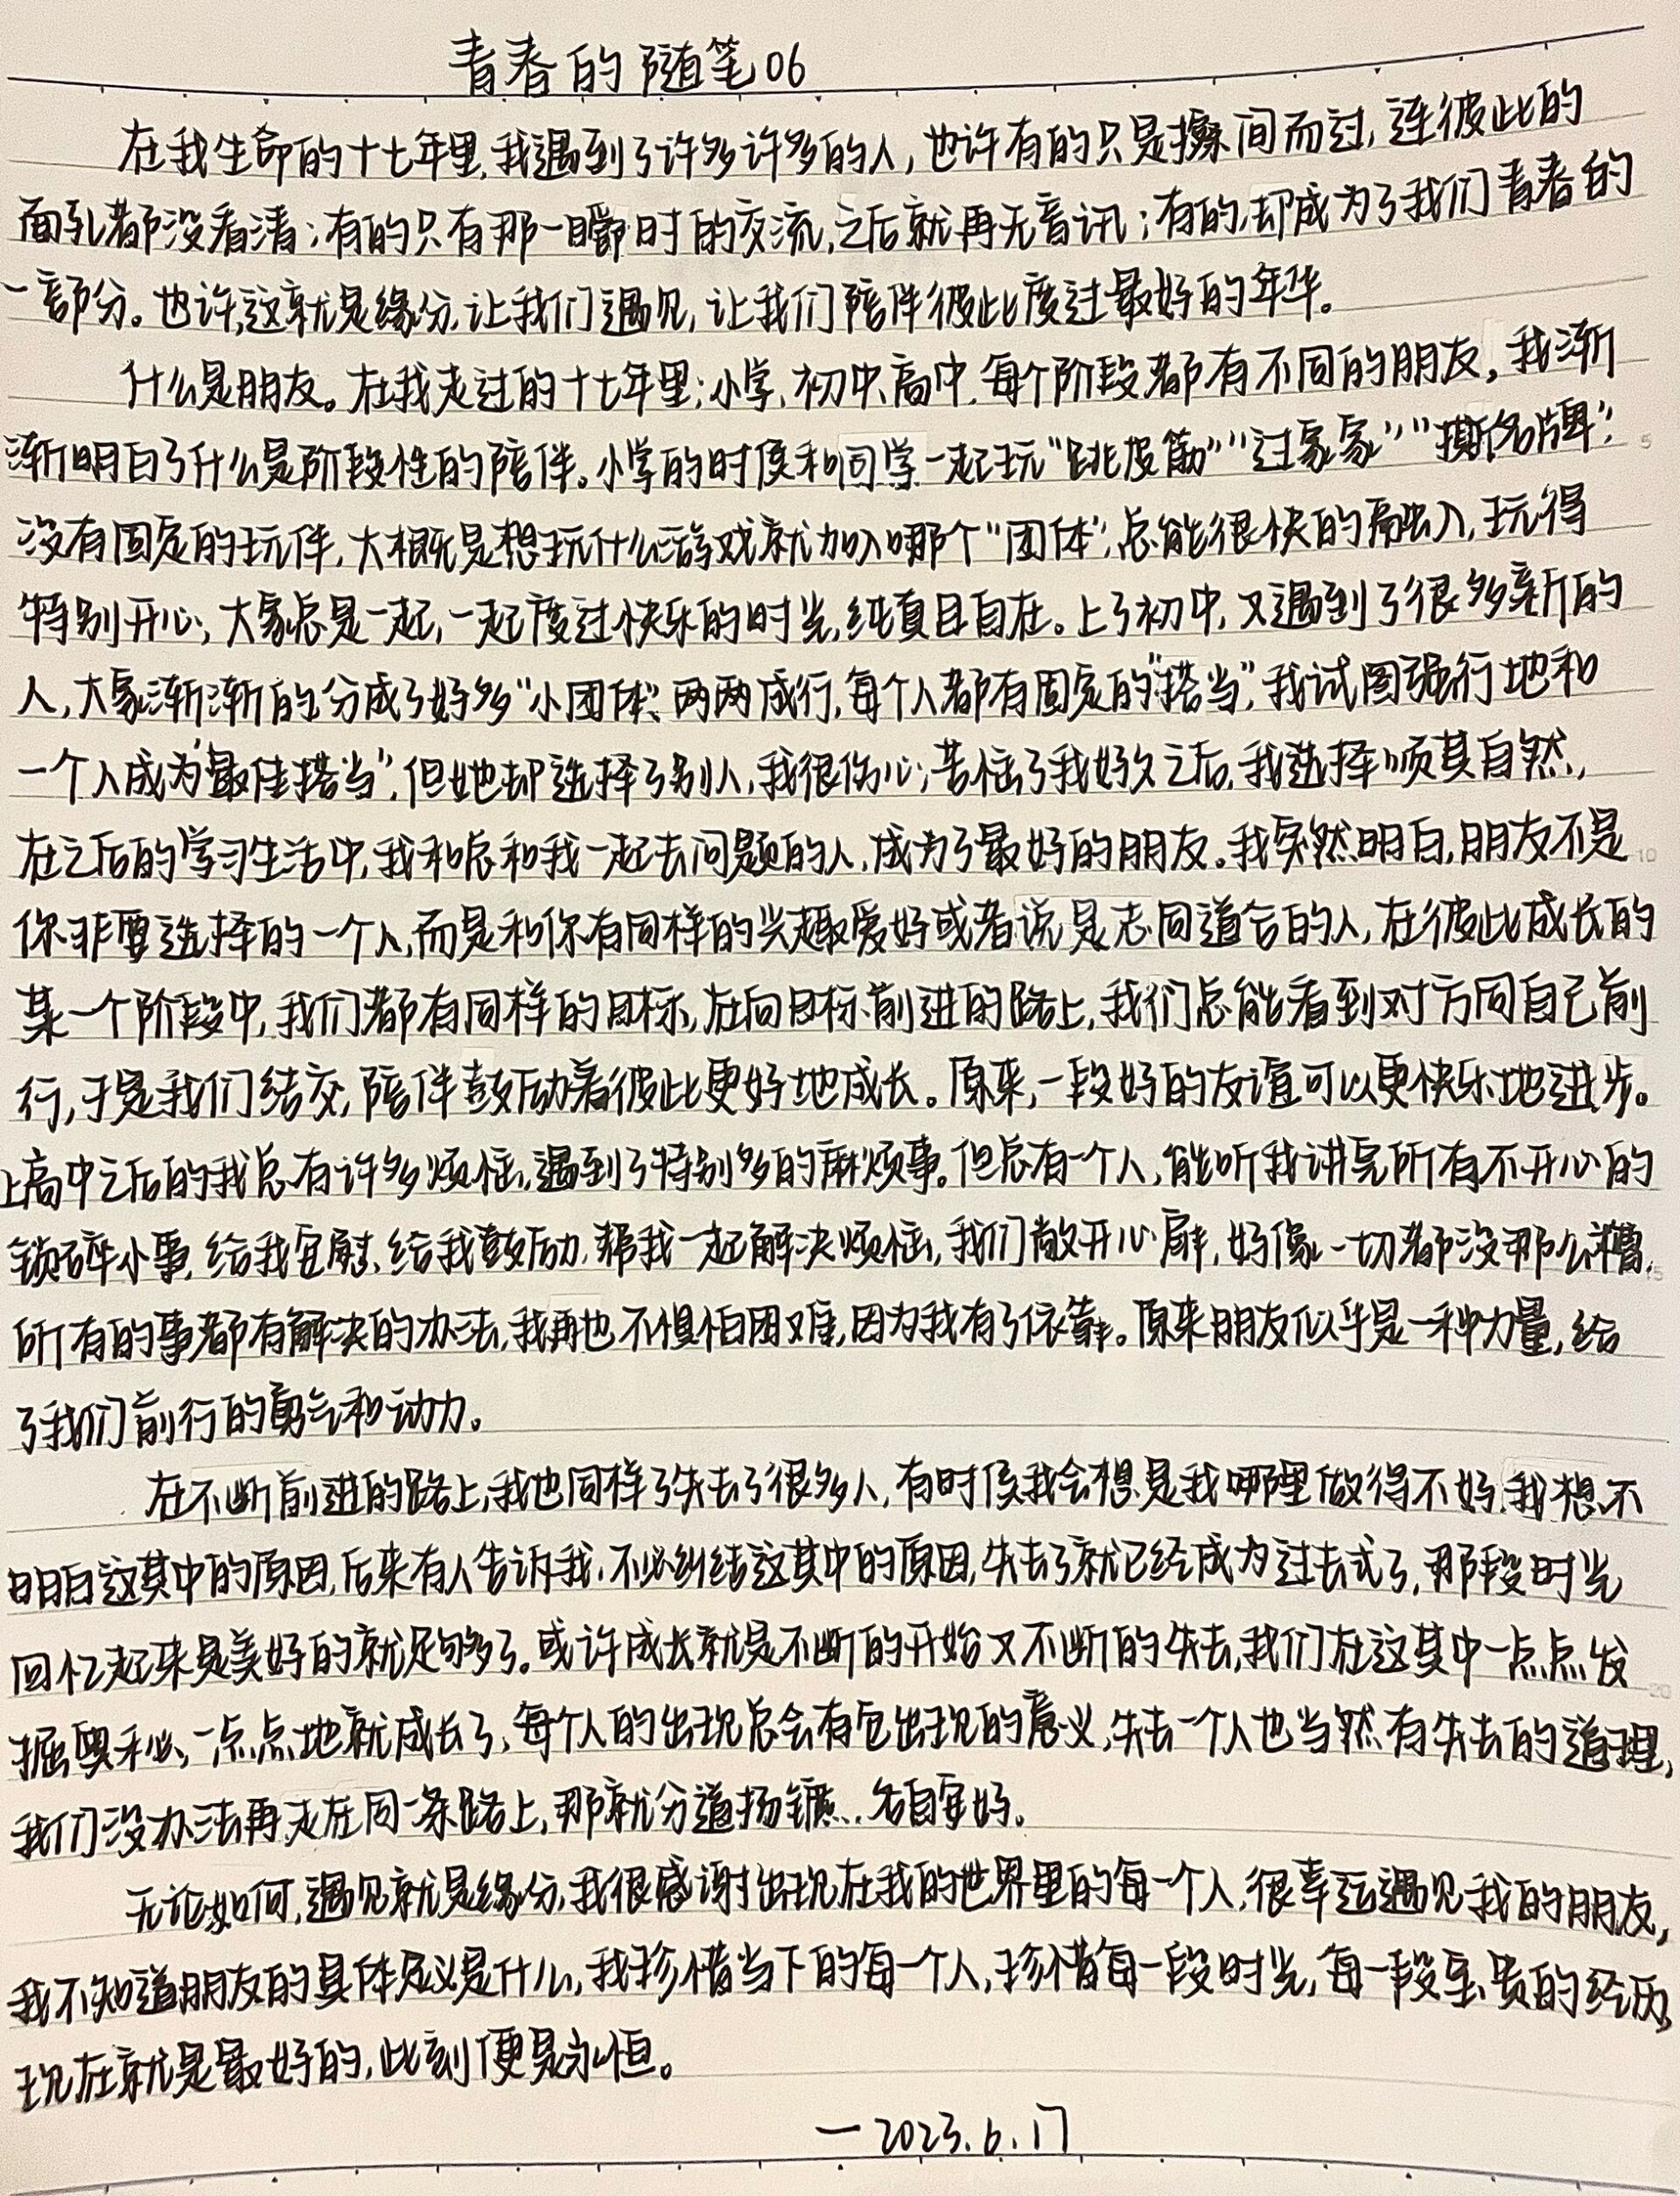 青春的随笔06
在我生命的十七年里,我遇到了许多许多的人,也许有的只是擦间而过,连彼此的
面孔都没看清;有的只有那一瞬时的交流,之后就再无音讯;有的,却成为了我们青春的
一部分。也许,这就是缘分,让我们遇见,让我们陪伴彼此度过最好的年华。
什么是朋友。在我走过的十七年里;小学、初中、高中,每个阶段都有不同的朋友,我渐
渐明白了什么是阶段性的陪伴。小学的时候和同学一起玩“跳皮筋”“过家家”“撕名牌”,
没有固定的玩伴,大概是想玩什么游戏就加入哪个“团体”,总能很快的融入,玩得
特别开心,大家总是一起,一起度过快乐的时光,纯真且自在。上了初中,又遇到了很多新的
人,大家渐渐的分成了好多“小团体”,两两成行,每个人都有固定的“搭当”,我试图强行地和
一个人成为“最佳搭当”,但她却选择了别人,我很伤心;苦恼了我好久之后,我选择顺其自然,
在之后的学习生活中,我和总和我一起去问题的人,成为了最好的朋友。我突然明白,朋友不是
你非要选择的一个人,而是和你有同样的兴趣爱好或者说是志同道合的人,在彼此成长的
某一个阶段中,我们都有同样的目标,在向目标前进的路上,我们总能看到对方同自己前
行,于是我们结交,陪伴鼓励着彼此更好地成长。原来,一段好的友谊可以更快乐地进步。
上高中之后的我总有许多烦恼,遇到了特别多的麻烦事。但总有一个人,能听我讲完所有不开心的
锁碎小事,给我安慰,给我鼓励,帮我一起解决烦恼,我们敞开心扉,好像一切都没那么糟,
所有的事都有解决的办法,我再也不惧怕困难,因为我有了依靠。原来朋友似乎是一种力量,给
了我们前行的勇气和动力。
在不断前进的路上,我也同样了失去了很多人,有时候我会想是我哪里做得不好,我想不
明白这其中的原因,后来有人告诉我,不必纠结这其中的原因,失去了就已经成为过去式了,那段时光
回忆起来是美好的就足够了。或许成长就是不断的开始又不断的失去,我们在这其中一点点发
掘奥秘,一点点地就成长了,每个人的出现总会有它出现的意义,失去一个人也当然有失去的道理,
我们没办法再走在同一条路上,那就分道扬镳,各自安好。
无论如何,遇见就是缘分,我很感谢出现在我的世界里的每一个人,很幸运遇见我的朋友,
我不知道朋友的具体定义是什么,我珍惜当下的每一个人,珍惜每一段时光,每一段宝贵的经历,
现在就是最好的,此刻便是永恒。
一2023.6.17
5
10
15
20